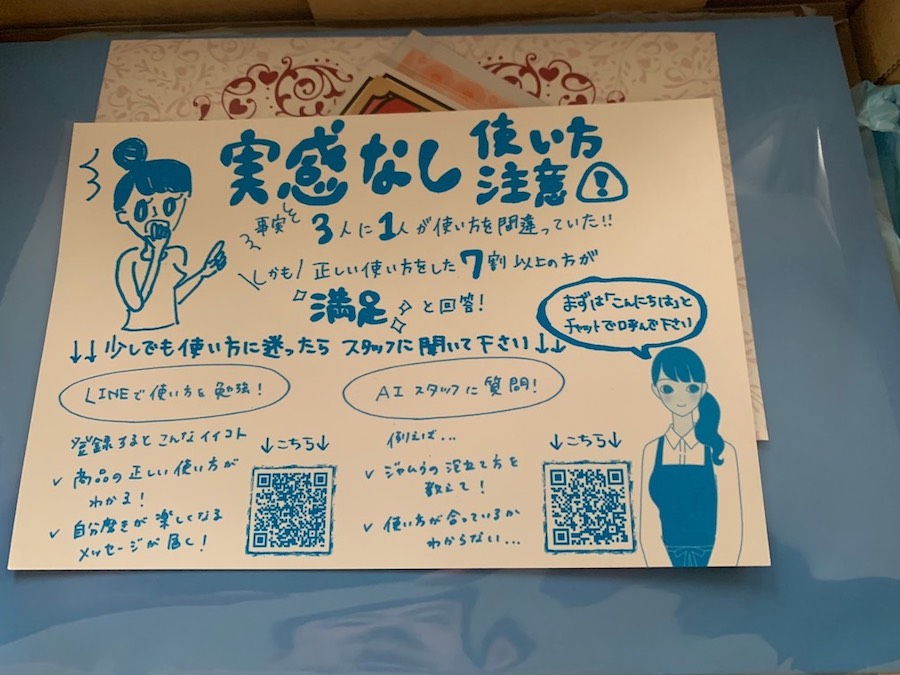 実感なし 使い方
注意 !
事実 3人に1人が使い方を間違っていた!!
しかも! 正しい使い方をした7割以上の方が
満足 と回答!
まずは「こんにちは」と
チャットで呼んで下さい
↓↓少しでも使い方に迷ったら スタッフに聞いて下さい↓↓
LINEで使い方を勉強!
登録するとこんなイイコト
✓ 商品の正しい使い方が
わかる!
✓ 自分磨きが楽しくなる
メッセージが届く!
↓こちら↓
AIスタッフに質問!
例えば...
✓ ジャムウの泡立て方を
教えて!
✓ 使い方が合っているか
わからない...
↓こちら↓